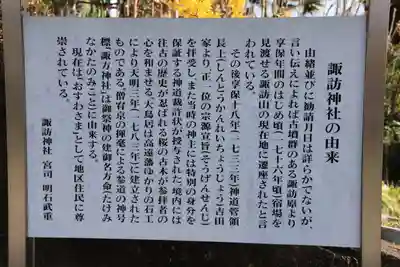 諏訪神社の由来
由緒並びに勧請年月日は詳らかでないが、
言い伝えによれば古墳群のある諏訪原より
享保年間のはじめ頃(一七十六年頃)宿場を
見渡せる諏訪山の現在地に遷座されたと言
われている。
その後享保十八年(一七三三年)神道管領
長上(しんとうかんれいちょうじょう)吉田
家より、正一位の宗源宣旨(そうげんせんじ)
を拝受し、また当時の神主には特別の身分を
保証する神道裁許状が授与された。境内には
往古の歴史が忍ばれる桜の古木が参拝者の
心を和ませる。大鳥居は高遠藩ゆかりの石工
により天明三年(一七八三年)に建立された
ものである。僧宥泉の揮毫による参道の神号
標「諏方神社」は御祭神の建御名方命(たけみ
なかたのみこと)に由来する。
現在は、「おすわさま」として地区住民に尊
崇されている。
諏訪神社 宮司 明石武重